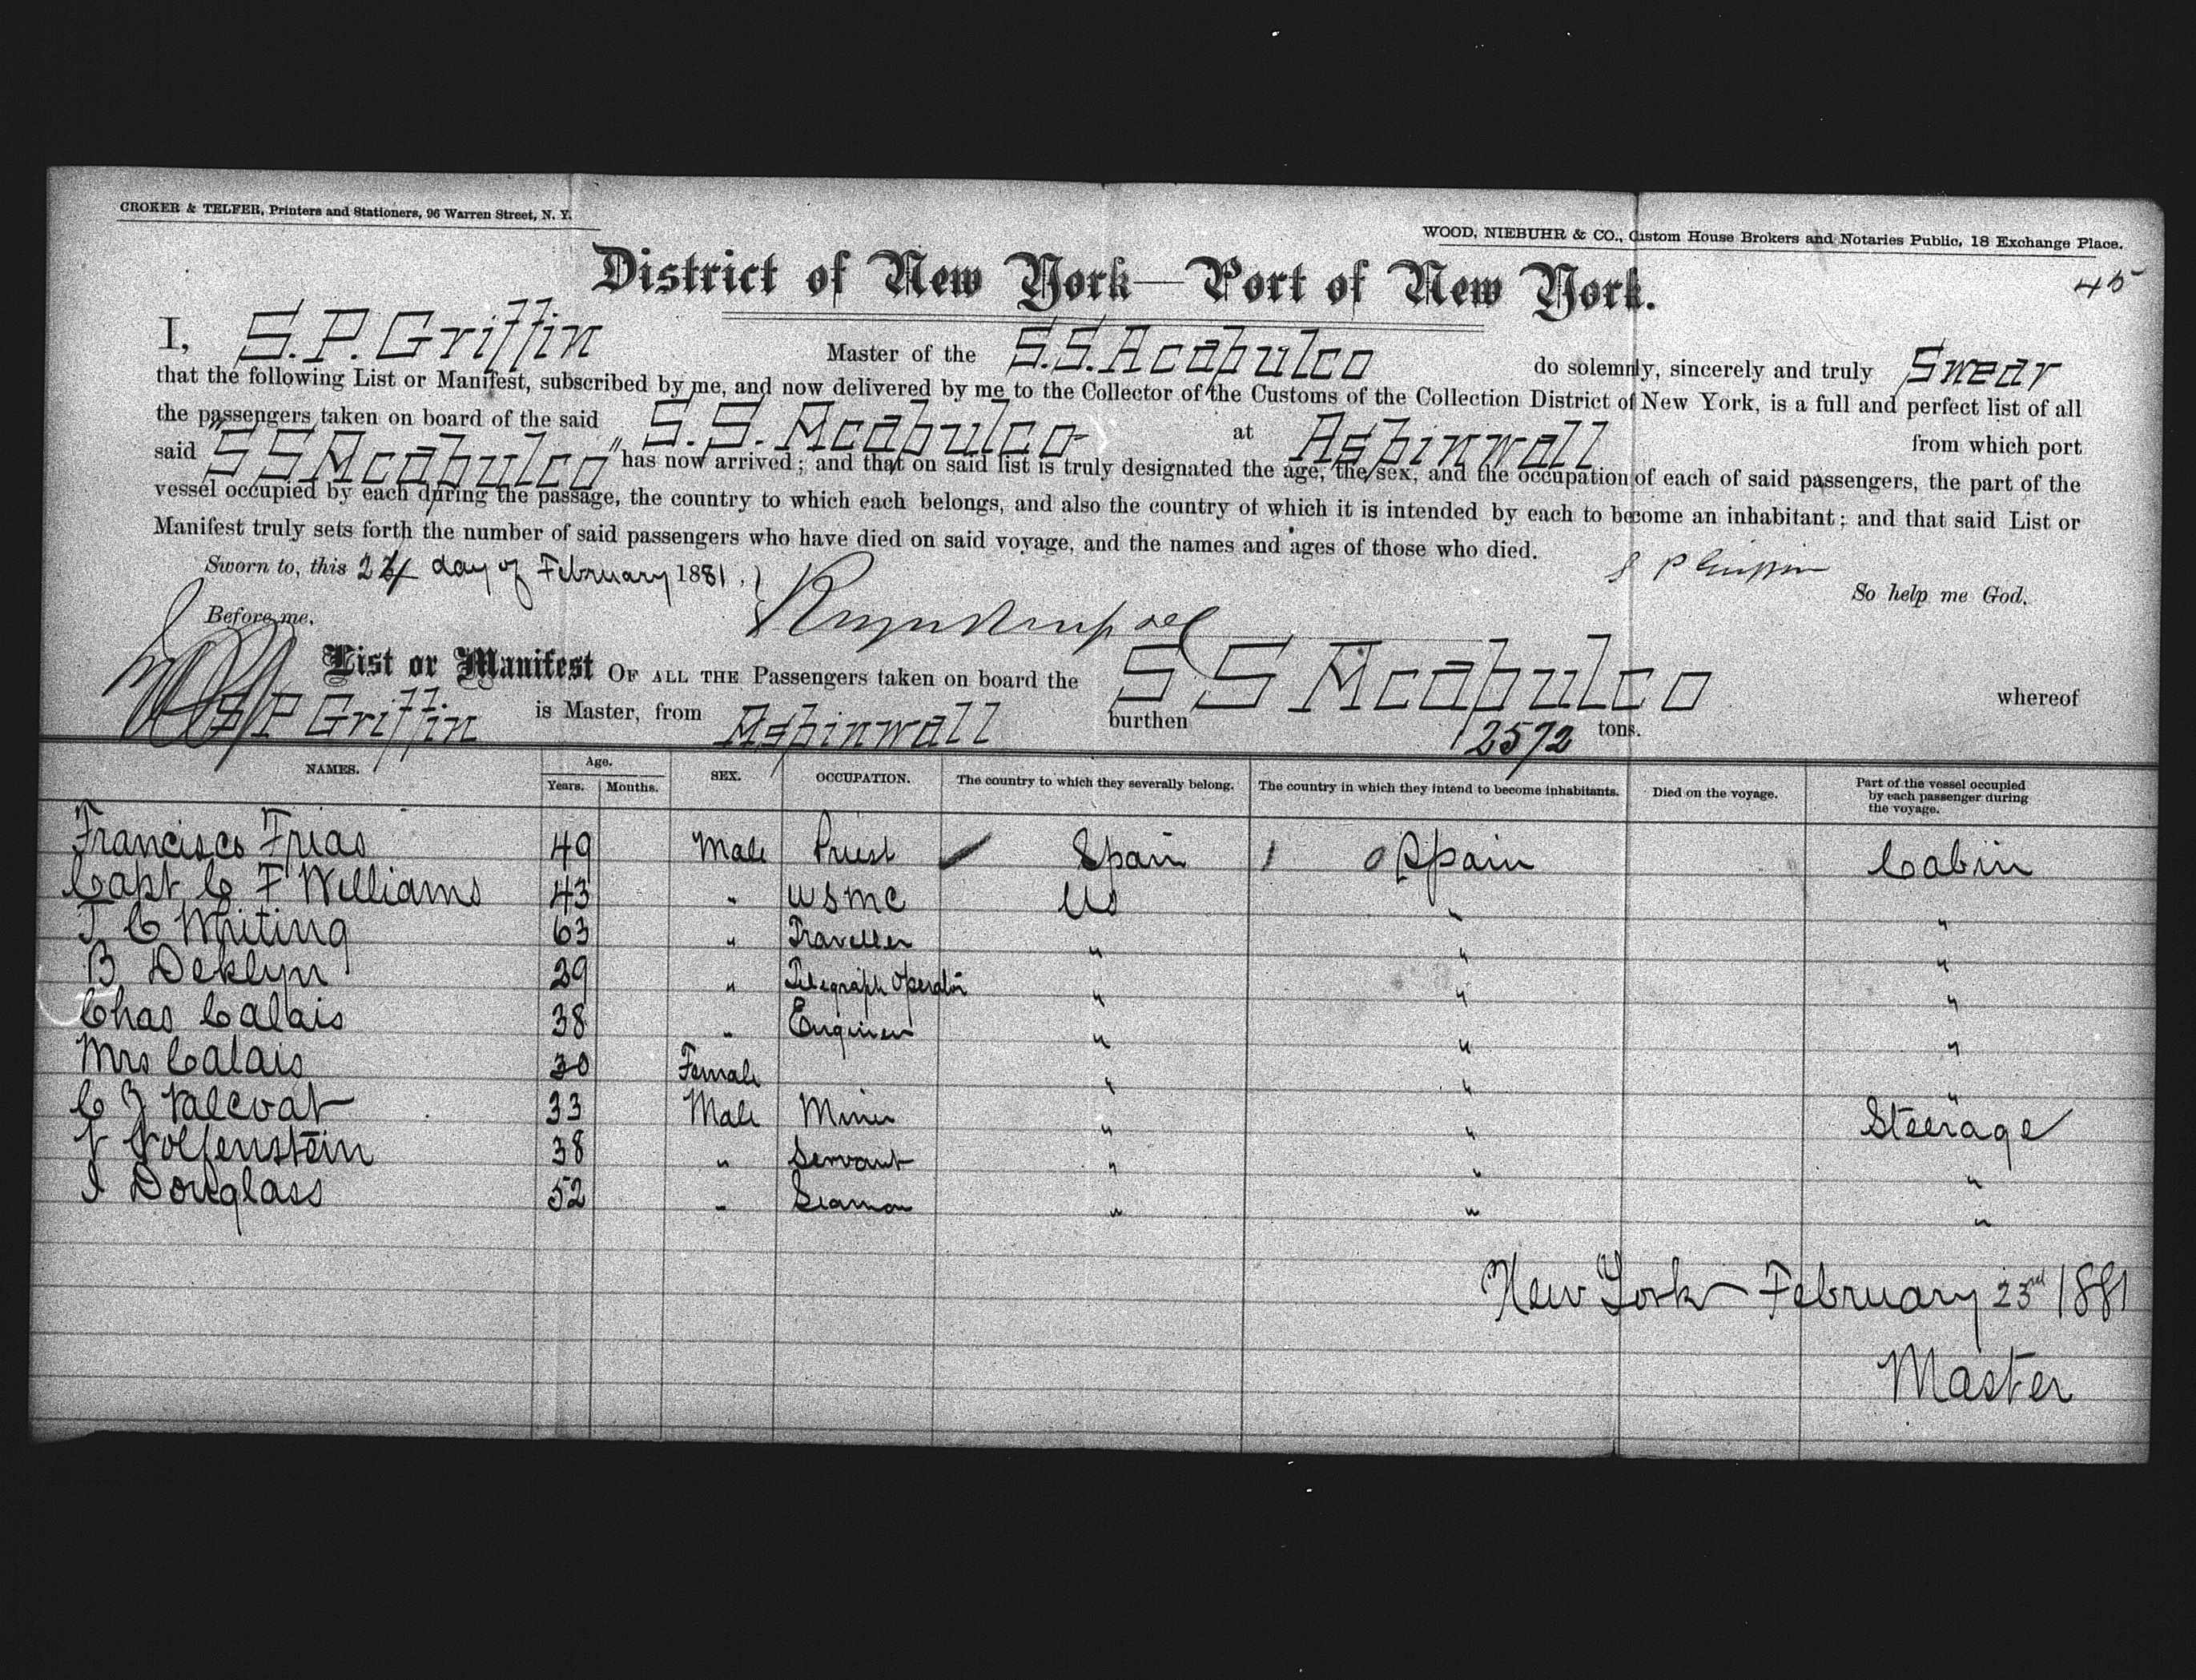 CROKER & TELFER, Printers and Stationers, 96 Warren Street, N. Y.
WOOD, NIEBUHR & CO., Custom House Brokers and Notaries Public, 18 Exchange Place.
45
District of New York—Port of New York.
I, S.P. Griffin Master of the S.S. Acapulco do solemnly, sincerely and truly Swear
that the following List or Manifest, subscribed by me, and now delivered by me to the Collector of the Customs of the Collection District of New York, is a full and perfect list of all
the passengers taken on board of the said S.S. Acapulco at Aspinwall from which port
said "SS Acapulco" has now arrived; and that on said list is truly designated the age, the sex, and the occupation of each of said passengers, the part of the
vessel occupied by each during the passage, the country to which each belongs, and also the country of which it is intended by each to become an inhabitant; and that said List or
Manifest truly sets forth the number of said passengers who have died on said voyage, and the names and ages of those who died.
Sworn to, this 24 day of February 1881. S P Griffin So help me God.
Before me,
List or Manifest OF ALL THE Passengers taken on board the S S Acapulco whereof
S P Griffin is Master, from Aspinwall burthen 2572 tons.
NAMES. Age. Years. Months. SEX. OCCUPATION. The country to which they severally belong. The country in which they intend to become inhabitants. Died on the voyage. Part of the vessel occupied by each passenger during the voyage.
Francisco Frias 49 Male Priest Spain Spain Cabin
Capt C F Williams 43 " USMC US " "
T C Whiting 63 " Traveller " " "
B Deklyn 29 " Telegraph Operator " " "
Chas Calais 38 " Engineer " " "
Mrs Calais 30 Female " " "
C Valcvat 33 Male Miner " " Steerage
Wolfenstein 38 " Servant " " "
I Douglass 52 " Seaman " " "
New York February 23rd 1881
Master